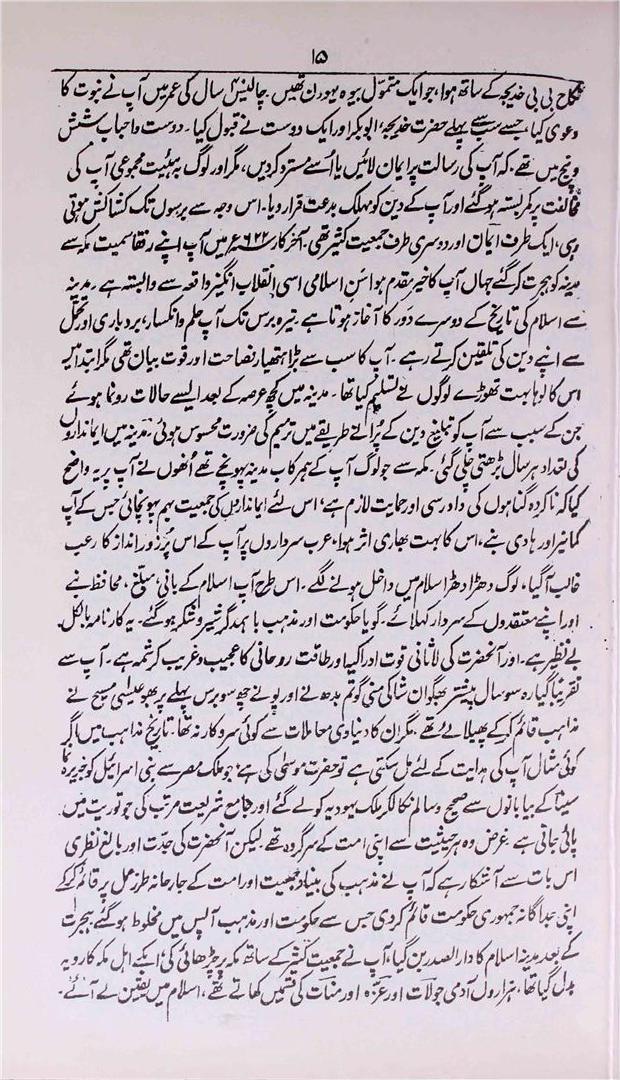 ۱۵
نکاح بی بی خدیجہ کے ساتھ ہوا، جو ایک متموّل بیوہ یہودن تھیں۔ چالیسؔ سال کی عمر میں آپ نے نبوت کا
دعویٰ کیا، جسے سب سے پہلے حضرت خدیجہؓ، ابوبکر اور ایک دوست نے قبول کیا۔ دوست و احباب شش
و پنج میں تھے۔ کہ آپ کی رسالت پر ایمان لائیں یا اُسے مسترد کر دیں، مگر اور لوگ بہ ہیئت مجموعی آپ کی
مخالفت پر کمر بستہ ہو گئے اور آپ کے دین کو مہلک بدعت قرار دیا۔ اس وجہ سے برسوں تک کشاکش ہوتی
رہی، ایک طرف ایمان اور دوسری طرف جمعیت کثیر تھی۔ آخر کار ۶۲۲ء میں آپ اپنے رفقا سمیت مکہ سے
مدینہ کو ہجرت کر گئے جہاں آپ کا خیر مقدم ہوا سن اسلامی اسی انقلاب انگیز واقعہ سے وابستہ ہے۔ مدینہ
سے اسلام کی تاریخ کے دوسرے دور کا آغاز ہوتا ہے۔ تیرہ برس تک آپ حلم و انکسار، بردباری اور تحمّل
سے اپنے دین کی تلقین کرتے رہے۔ آپ کا سب سے بڑا ہتھیار فصاحت اور قوت بیان تھی مگر ابتدا میں
اس کا لوہا بہت تھوڑے لوگوں نے تسلیم کیا تھا۔ مدینہ میں کچھ عرصہ کے بعد ایسے حالات رونما ہوئے
جن کے سبب سے آپ کو تبلیغ دین کے پُرانے طریقے میں ترمیم کی ضرورت محسوس ہوئی۔ مدینہ میں ایمانداروں
کی تعداد ہر سال بڑھتی چلی گئی۔ مکہ سے جو لوگ آپ کے ہمرکاب مدینہ پہونچے تھے اُنھوں نے آپ پر یہ واضح
کیا کہ ناکردہ گناہوں کی دادرسی اور حمایت لازم ہے، اس لئے ایمانداروں کی جمعیت بہم پہونچائی جس کے آپ
کمانیر اور ہادی بنے، اس کا بہت بھاری اثر ہوا۔ عرب سرداروں پر آپ کے اس پُر زور انداز کا رعب
غالب آگیا، لوگ دھڑا دھڑ اسلام میں داخل ہونے لگے۔ اس طرح آپ اسلام کے بانی، مبلغ، محافظ بنے
اور اپنے معتقدوں کے سردار کہلائے۔ گویا حکومت اور مذہب باہمدگر شیر و شکر ہو گئے۔ یہ کارنامہ بالکل
بے نظیر ہے۔ اور آنحضرت کی لاثانی قوت ادراک اور طاقت روحانی کا عجیب و غریب کرشمہ ہے۔ آپ سے
تقریباً گیارہ سو سال پیشتر بھگوان شاکی منی گوتم بدھ نے اور پونے چھ سو برس پہلے پربھو عیسیٰ مسیح نے
مذاہب قائم کر کے پھیلائے تھے، مگر ان کا دنیاوی معاملات سے کوئی سروکار نہ تھا۔ تاریخ مذاہب میں اگر
کوئی مثال آپ کی ہدایت کے لئے مل سکتی ہے تو حضرت موسیٰ کی ہے، جو ملک مصر سے بنی اسرائیل کو جزیرہ نما
سینا کے بیابانوں سے صحیح و سالم نکال کر ملک یہودیہ کو لے گئے اور جامع شریعت مرتب کی جو توریت میں
پائی جاتی ہے۔ غرض وہ ہر حیثیت سے اپنی امت کے سرگروہ تھے۔ لیکن آنحضرت کی جدّت اور بالغ نظری
اس بات سے آشکار ہے کہ آپ نے مذہب کی بنیاد جمعیت اور امت کے جارحانہ طرز عمل پر قائم کر کے
اپنی جداگانہ جمہوری حکومت قائم کر دی جس سے حکومت اور مذہب آپس میں مخلوط ہو گئے ہجرت
کے بعد مدینہ اسلام کا دار الصدر بن گیا، آپ نے جمعیت کثیر کے ساتھ مکہ پر چڑھائی کی، اب کے اہل مکہ کا رویہ
بدل گیا تھا، ہزاروں آدمی جو لات اور عزہ اور منات کی قسمیں کھاتے تھے، اسلام میں یقین لے آئے۔